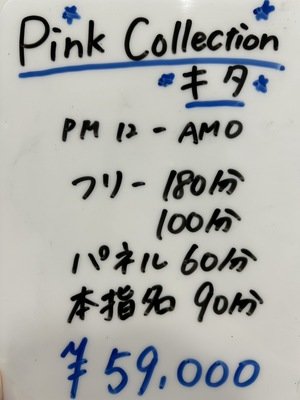 Pink Collection
キタ
PM 12 - AM0
フリー 180分
100分
パネル 60分
本指名 90分
¥59,000